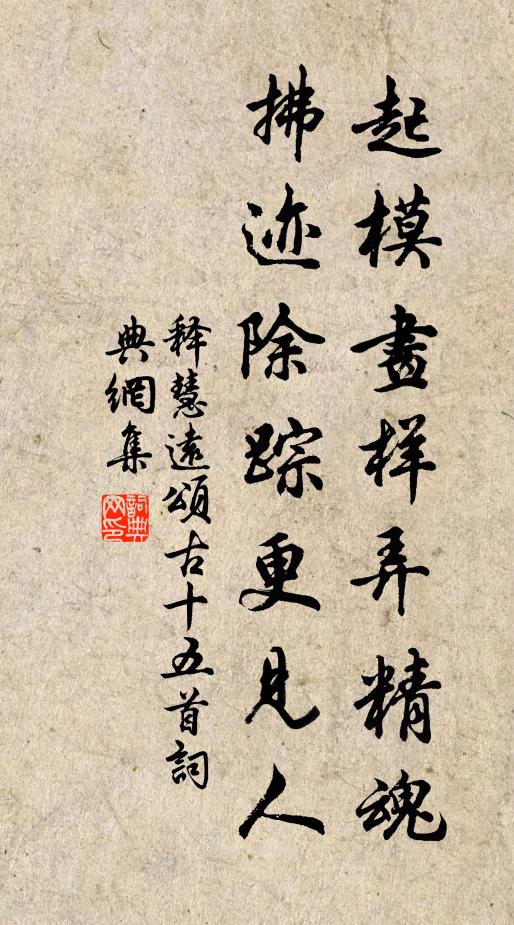 起模畫样弄精魂
拂迹除踪更見人
释慧遠頌古十五首詞
典網集
詞典网印